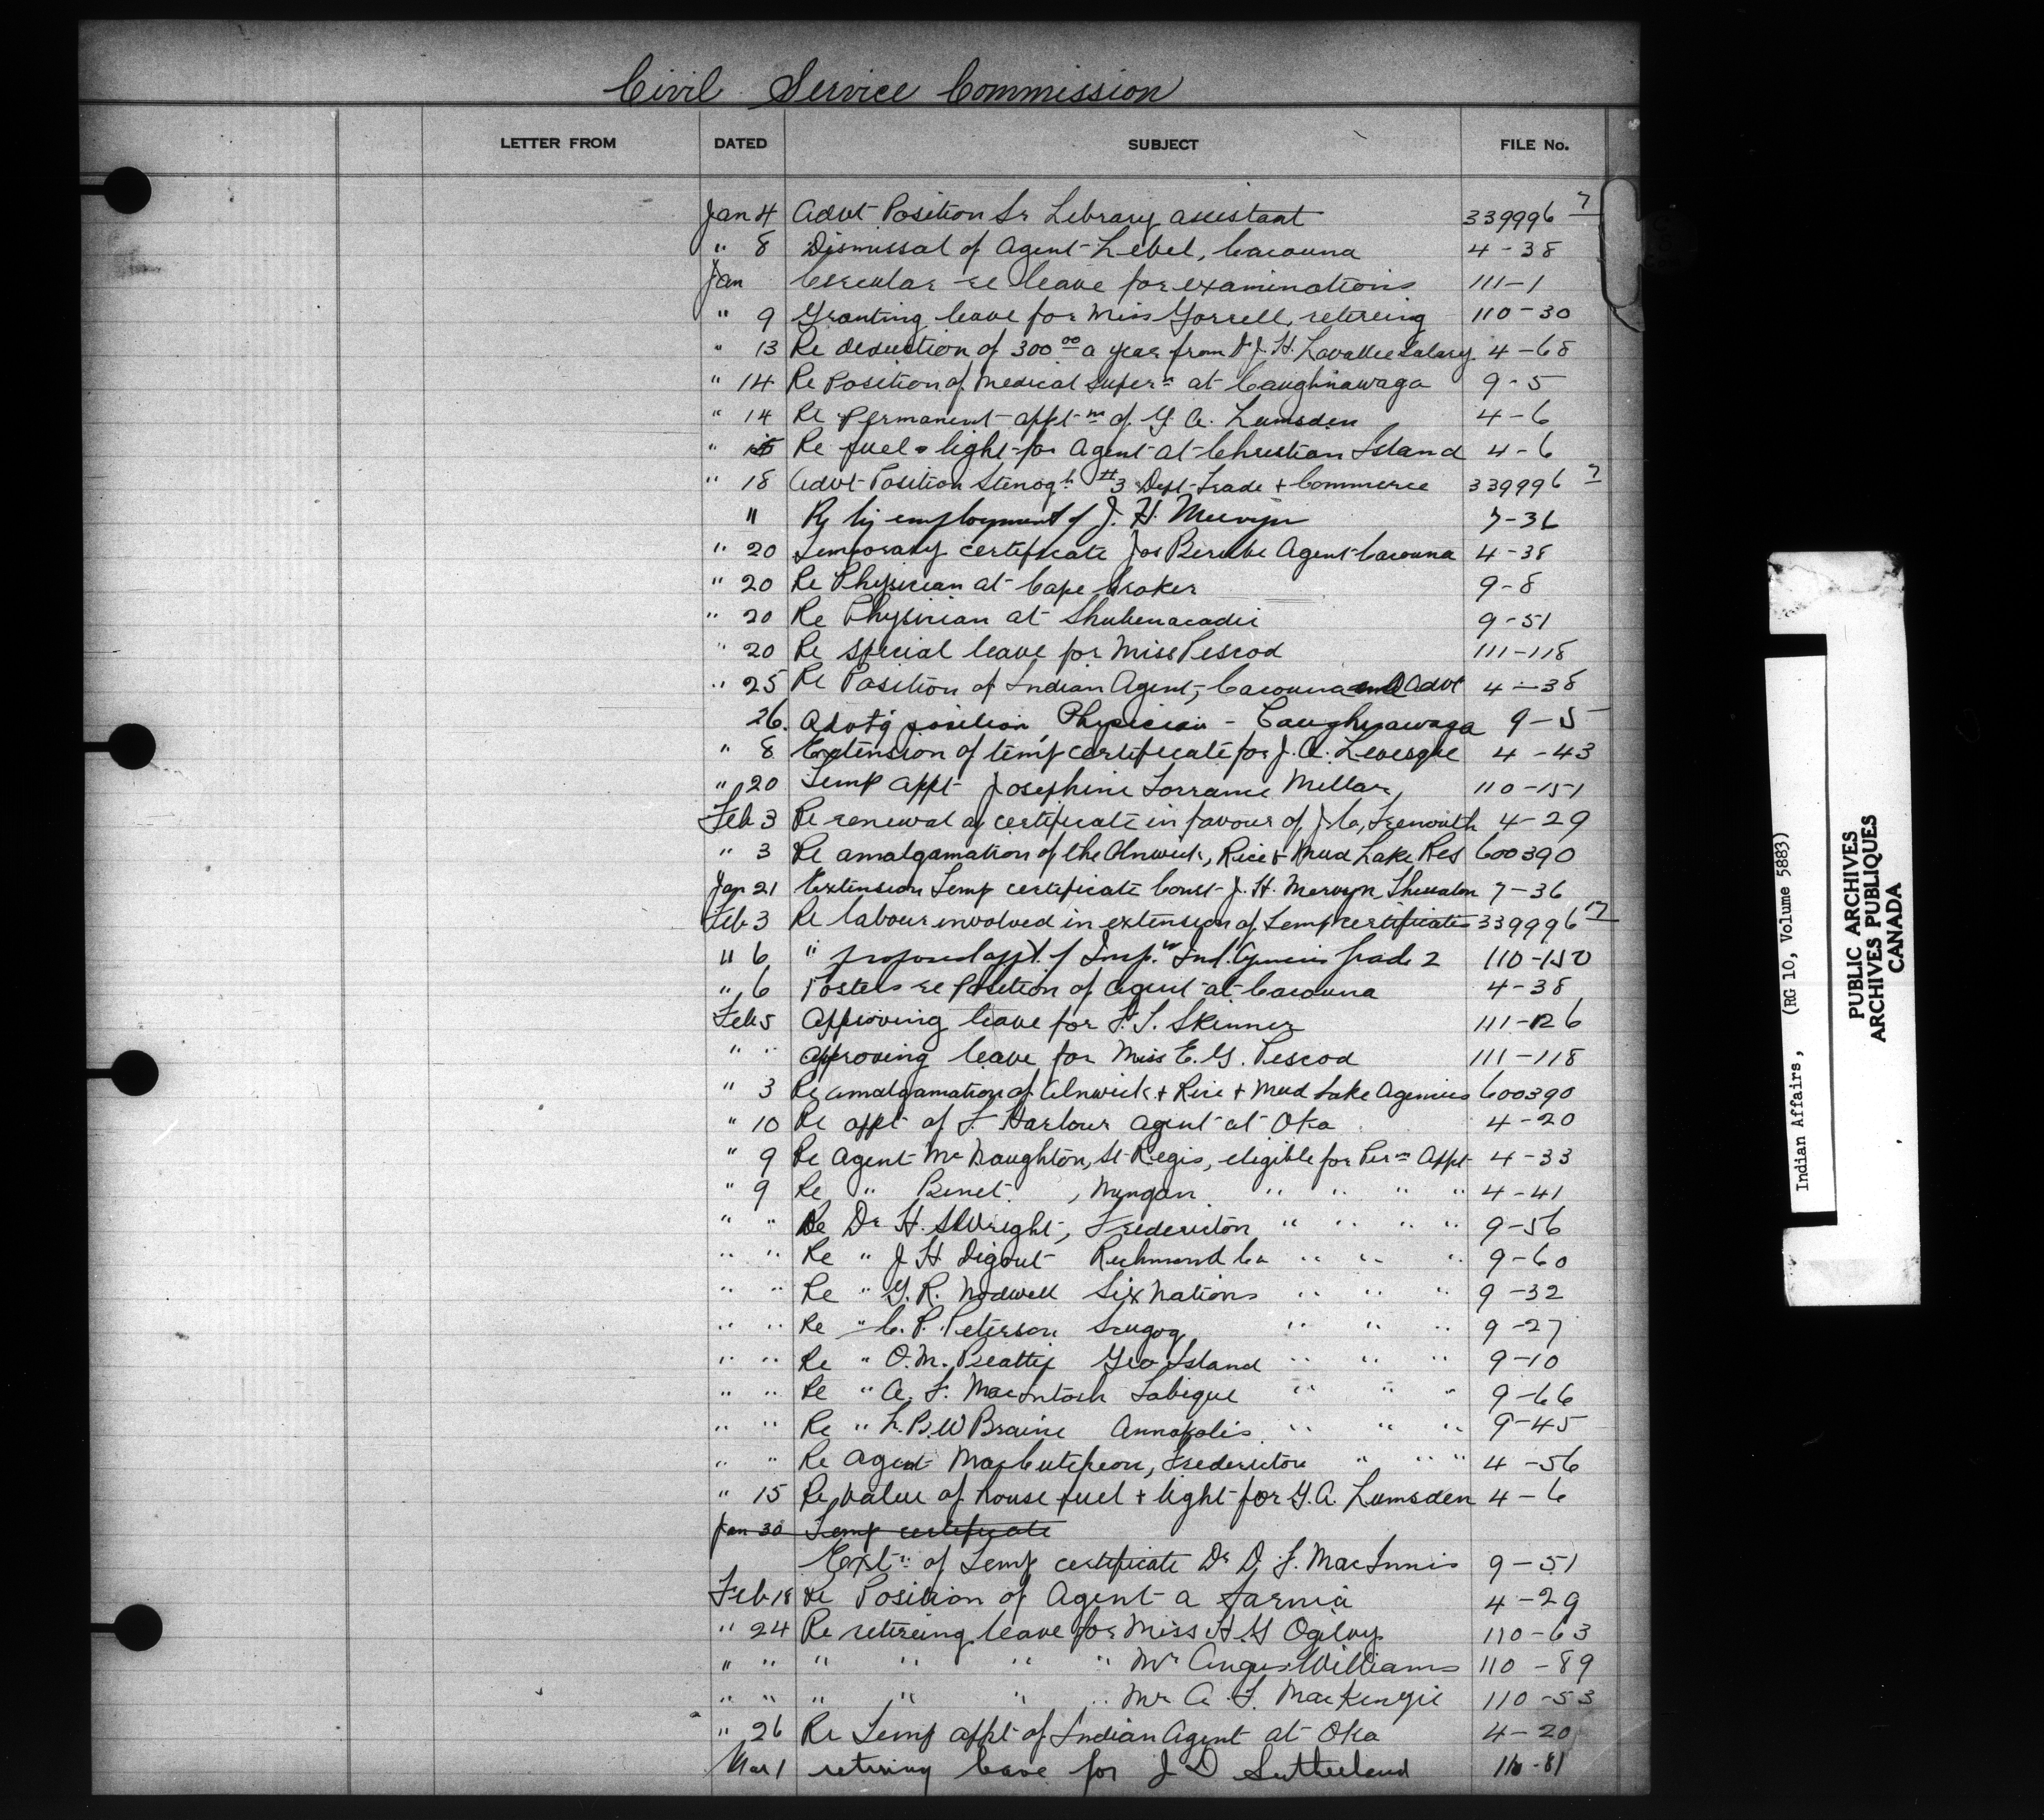 Civil Service Commission
LETTER FROM DATED SUBJECT FILE No.
Jan 4 Advt Position Sr Library assistant 339996 7
" 8 Dismissal of Agent Lebel, Cacouna 4-38
Jan Circular re leave for examinations 111-1
" 9 Granting leave for Miss Gorrell, retireing 110-30
" 13 Re deduction of 300 00 a year from Dr J. H. Lavallee Salary 4-68
" 14 Re Position of Medical Super n at Caughnawaga 9-5
" 14 Re Permanent appt m of G. A. Lumsden 4-6
" 15 Re fuel & light for Agent at Christian Island 4-6
" 18 Advt Position Stenog r #3 Dept Trade + Commerce 339996 7
" employment of J. H. Mervyn 7-36
" 20 Temporary certificate Jos Berube Agent Cacouna 4-38
" 20 Re Physician at Cape Croker 9-8
" 20 Re Physician at Shubenacadie 9-51
" 20 Re special leave for Miss Pescod 111-118
" 25 Re Position of Indian Agent, Cacouna Advt 4-38
26. Advt'g position Physician - Caughnawaga 9-5
" 8 Extension of temp certificate for J. A. Levesque 4-43
" 20 Temp Appt Josephine Lorraine Millar, 110-151
Feb 3 Re renewal of certificate in favour of J. C. Trenouth 4-29
" 3 Re amalgamation of the Alnwick, Rice & Mud Lake Res 600390
Jan 21 Extension Temp certificate Const J. H. Mervyn, 7-36
Feb 3 Re labour involved in extension of Temp certificates 339996 17
" 6 " proposed appt. of Insp. Ind. Agencies Grade 2 110-150
" 6 Posters re Position of Agent at Cacouna 4-38
Feb 5 Approving leave for F. T. Skinner 111-126
" " Approving leave for Miss E. G. Pescod 111-118
" 3 Re amalgamation of Alnwick + Rice + Mud Lake Agencies 600390
" 10 Re appt of F. Harbour agent at Oka 4-20
" 9 Re Agent McNaughton, St Regis, eligible for Per m Appt 4-33
" 9 Re " Binet, Mingan " " " " 4-41
" " Re Dr H. S Wright, Fredericton " " " " 9-56
" " Re " J H Digout Richmond Co " " " 9-60
" " Re " G. R. Nodwell Six Nations " " " 9-32
" " Re " C. P. Peterson Scugog " " " 9-27
" " Re " O. M. Beattie Geo Island " " " 9-10
" " Re " A. F. MacIntosh Tobique " " " 9-66
" " Re " L. B. W Braine Annapolis " " " 9-45
" " Re Agent MacCutcheon, Fredericton " " " 4-56
" 15 Re value of house fuel + light for G. A. Lumsden 4-6
Jan 30 Temp certificate
Ext n of Temp certificate Dr D. F. MacInnis 9-51
Feb 18 Re Position of Agent a Sarnia 4-29
" 24 Re retireing leave for Miss H. G Ogilvy 110-63
" " " " " " Mr Angus Williams 110-89
" " " " " " Mr A. F. MacKenzie 110-53
" 26 Re Temp appt of Indian Agent at Oka 4-20
Mar 1 retiring leave for J D Sutherland 110-81
Indian Affairs, (RG 10, Volume 5883)
PUBLIC ARCHIVES
ARCHIVES PUBLIQUES
CANADA